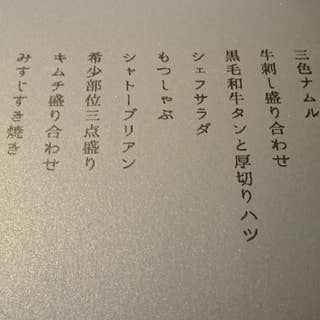 三色ナムル
牛刺し盛り合わせ
黒毛和牛タンと厚切りハツ
シェフサラダ
もつしゃぶ
シャトーブリアン
希少部位三点盛り
キムチ盛り合わせ
みすじすき焼き